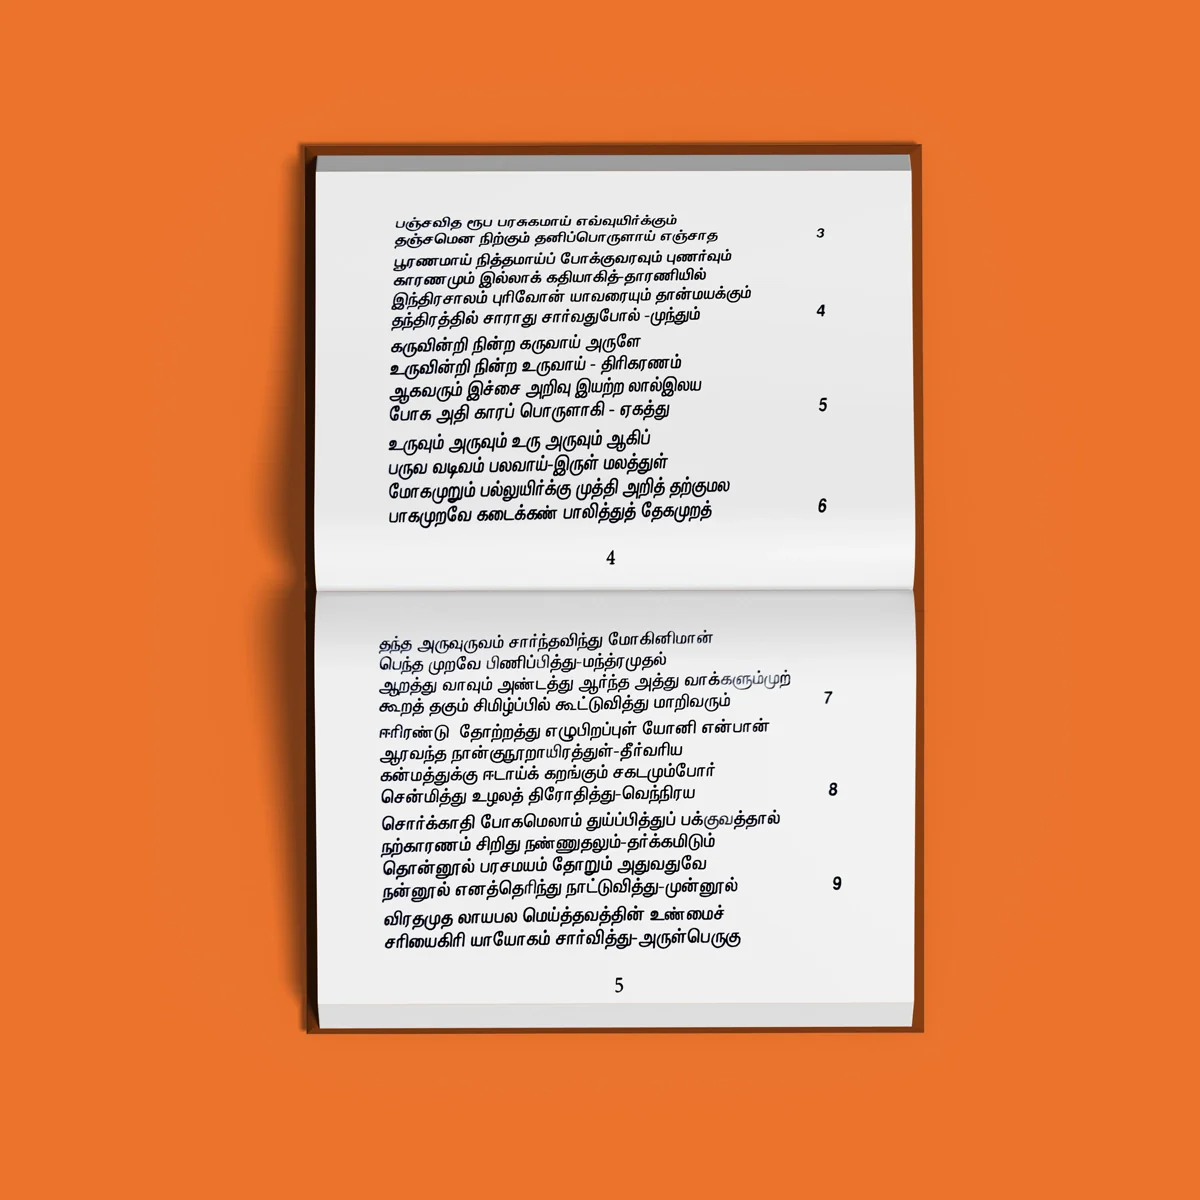 பஞ்சவித ரூப பரசுகமாய் எவ்வுயிர்க்கும்
தஞ்சமென நிற்கும் தனிப்பொருளாய் எஞ்சாத 3
பூரணமாய் நித்தமாய்ப் போக்குவரவும் புணர்வும்
காரணமும் இல்லாக் கதியாகித்-தாரணியில்
இந்திரசாலம் புரிவோன் யாவரையும் தான்மயக்கும்
தந்திரத்தில் சாராது சார்வதுபோல் -முந்தும் 4
கருவின்றி நின்ற கருவாய் அருளே
உருவின்றி நின்ற உருவாய் - திரிகரணம்
ஆகவரும் இச்சை அறிவு இயற்ற லால்இலய
போக அதி காரப் பொருளாகி - ஏகத்து 5
உருவும் அருவும் உரு அருவும் ஆகிப்
பருவ வடிவம் பலவாய்-இருள் மலத்துள்
மோகமுறும் பல்லுயிர்க்கு முத்தி அறித் தற்குமல
பாகமுறவே கடைக்கண் பாலித்துத் தேகமுறத் 6
4
தந்த அருவுருவம் சார்ந்தவிந்து மோகினிமான்
பெந்த முறவே பிணிப்பித்து-மந்த்ரமுதல்
ஆறத்து வாவும் அண்டத்து ஆர்ந்த அத்து வாக்களும்முற்
கூறத் தகும் சிமிழ்ப்பில் கூட்டுவித்து மாறிவரும் 7
ஈரிரண்டு தோற்றத்து எழுபிறப்புள் யோனி என்பான்
ஆரவந்த நான்குநூறாயிரத்துள்-தீர்வரிய
கன்மத்துக்கு ஈடாய்க் கறங்கும் சகடமும்போர்
சென்மித்து உழலத் திரோதித்து-வெந்நிரய 8
சொர்க்காதி போகமெலாம் துய்ப்பித்துப் பக்குவத்தால்
நற்காரணம் சிறிது நண்ணுதலும்-தர்க்கமிடும்
தொன்னூல் பரசமயம் தோறும் அதுவதுவே
நன்னூல் எனத்தெரிந்து நாட்டுவித்து-முன்னூல் 9
விரதமுத லாயபல மெய்த்தவத்தின் உண்மைச்
சரியைகிரி யாயோகம் சார்வித்து-அருள்பெருகு
5